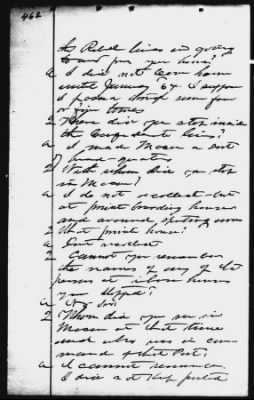 462
the Rebel lines in going
to and from your home?
a I did not come home
until January '64. I suppose
I passed through some four
or five times
Q Where did you stop inside
the Confederate lines?
a I made Macon a sort
of head-quarters
Q With whom did you stop
in Macon?
a I do not recollect—but
at private boarding houses
and around
Q What private house?
a Dont recollect
Q Cannot you remember
the names of any of the
persons at whose houses
you stopped?
a No Sir.
Q Whom did you see in
Macon at that time
and who was in com-
mand of that Post?
a I cannot remember.
I did not keep posted